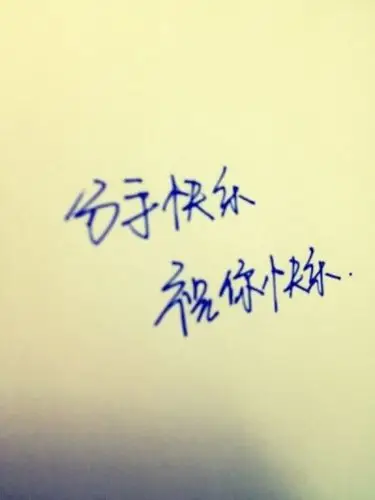 分手快乐
祝你快乐.